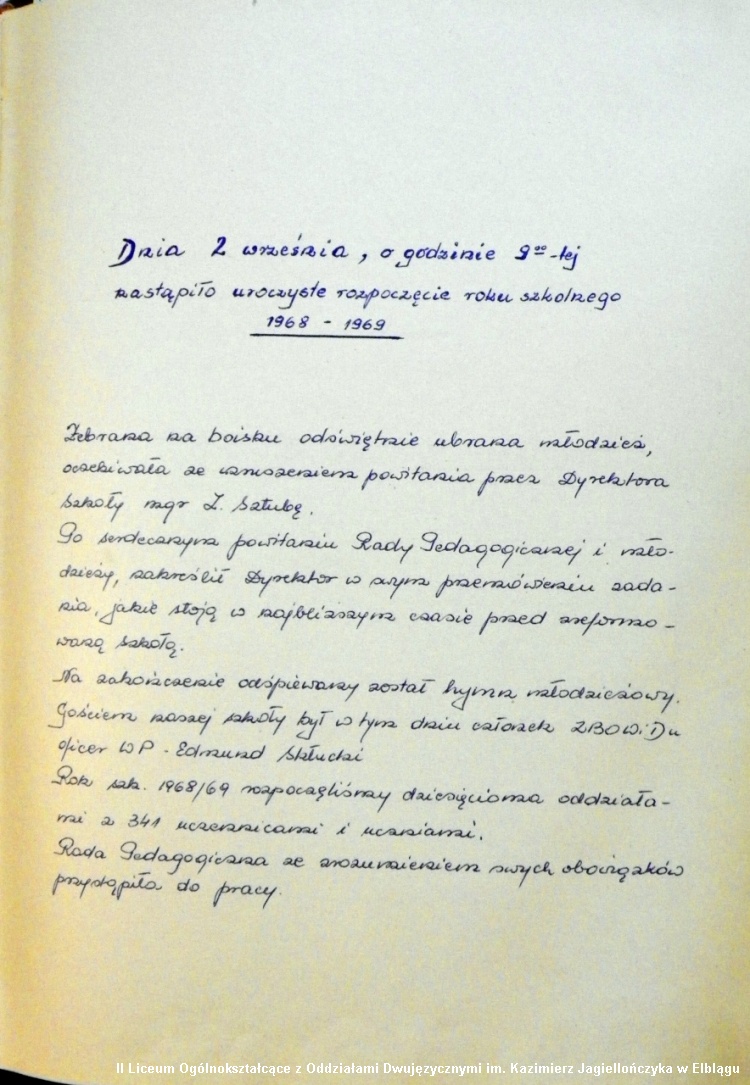 Dnia 2 września, o godzinie 9⁰⁰-tej
nastąpiło uroczyste rozpoczęcie roku szkolnego
1968 - 1969
Zebrana na boisku odświętnie ubrana młodzież,
oczekiwała ze wzruszeniem powitania przez Dyrektora
szkoły mgr Z. Sztubę.
Po serdecznym powitaniu Rady Pedagogicznej i mło-
dzieży, zakreślił Dyrektor w swym przemówieniu zada-
nia, jakie stoją w najbliższym czasie przed zreformo-
waną szkołą.
Na zakończenie odśpiewany został hymn młodzieżowy.
Gościem naszej szkoły był w tym dniu członek ZBOWiDu
oficer WP - Edmund Skłucki
Rok szk. 1968/69 rozpoczęliśmy dziesięcioma oddziała-
mi z 341 uczennicami i uczniami.
Rada Pedagogiczna ze zrozumieniem swych obowiązków
przystąpiła do pracy.
II Liceum Ogólnokształcące z Oddziałami Dwujęzycznymi im. Kazimierz Jagiellończyka w Elblągu